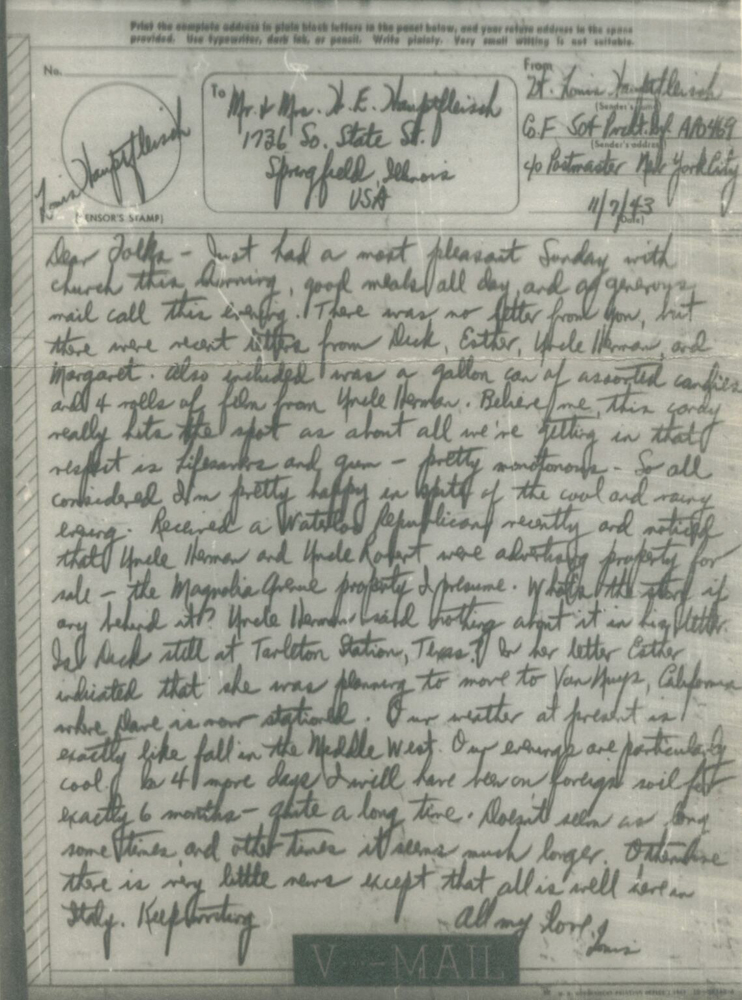 Print the complete address in plain block letters in the panel below, and your return address in the space
provided. Use typewriter, dark ink, or pencil. Write plainly. Very small writing is not suitable.
No.
Louis Hauptfleisch
[CENSOR'S STAMP]
To
Mr. & Mrs. W. E. Hauptfleisch
1736 So. State St.
Springfield, Illinois
USA
From
Lt. Louis Hauptfleisch
[Sender's name]
Co F 504 Procht. Inf. APO 469
[Sender's address]
c/o Postmaster New York City
11/7/43
[Date]
Dear Folks - Just had a most pleasant Sunday with
church this morning, good meals all day, and a generous
mail call this evening. There was no letter from you, but
there were recent letters from Dick, Esther, Uncle Herman, and
Margaret. Also included was a gallon can of assorted candies
and 4 rolls of film from Uncle Herman. Believe me, this candy
really hits the spot as about all we're getting in that
respect is Lifesavers and gum - pretty monotonous - So all
considered I'm pretty happy in spite of the cool and rainy
evening. Received a Waterloo Republican recently and noticed
that Uncle Herman and Uncle Robert were advertising property for
sale - the Magnolia Avenue property I presume. What's the story if
any behind it? Uncle Herman said nothing about it in his letter.
Is Dick still at Tarleton Station, Texas? In her letter Esther
indicated that she was planning to move to Van Nuys, California
where Dave is now stationed. Our weather at present is
exactly like fall in the Middle West. Our evenings are particularly
cool. In 4 more days I will have been on foreign soil for
exactly 6 months - quite a long time. Doesn't seem as long
some times and other times it seems much longer. Otherwise
there is very little news except that all is well here in
Italy. Keep writing
All my love,
Louis
V···-MAIL